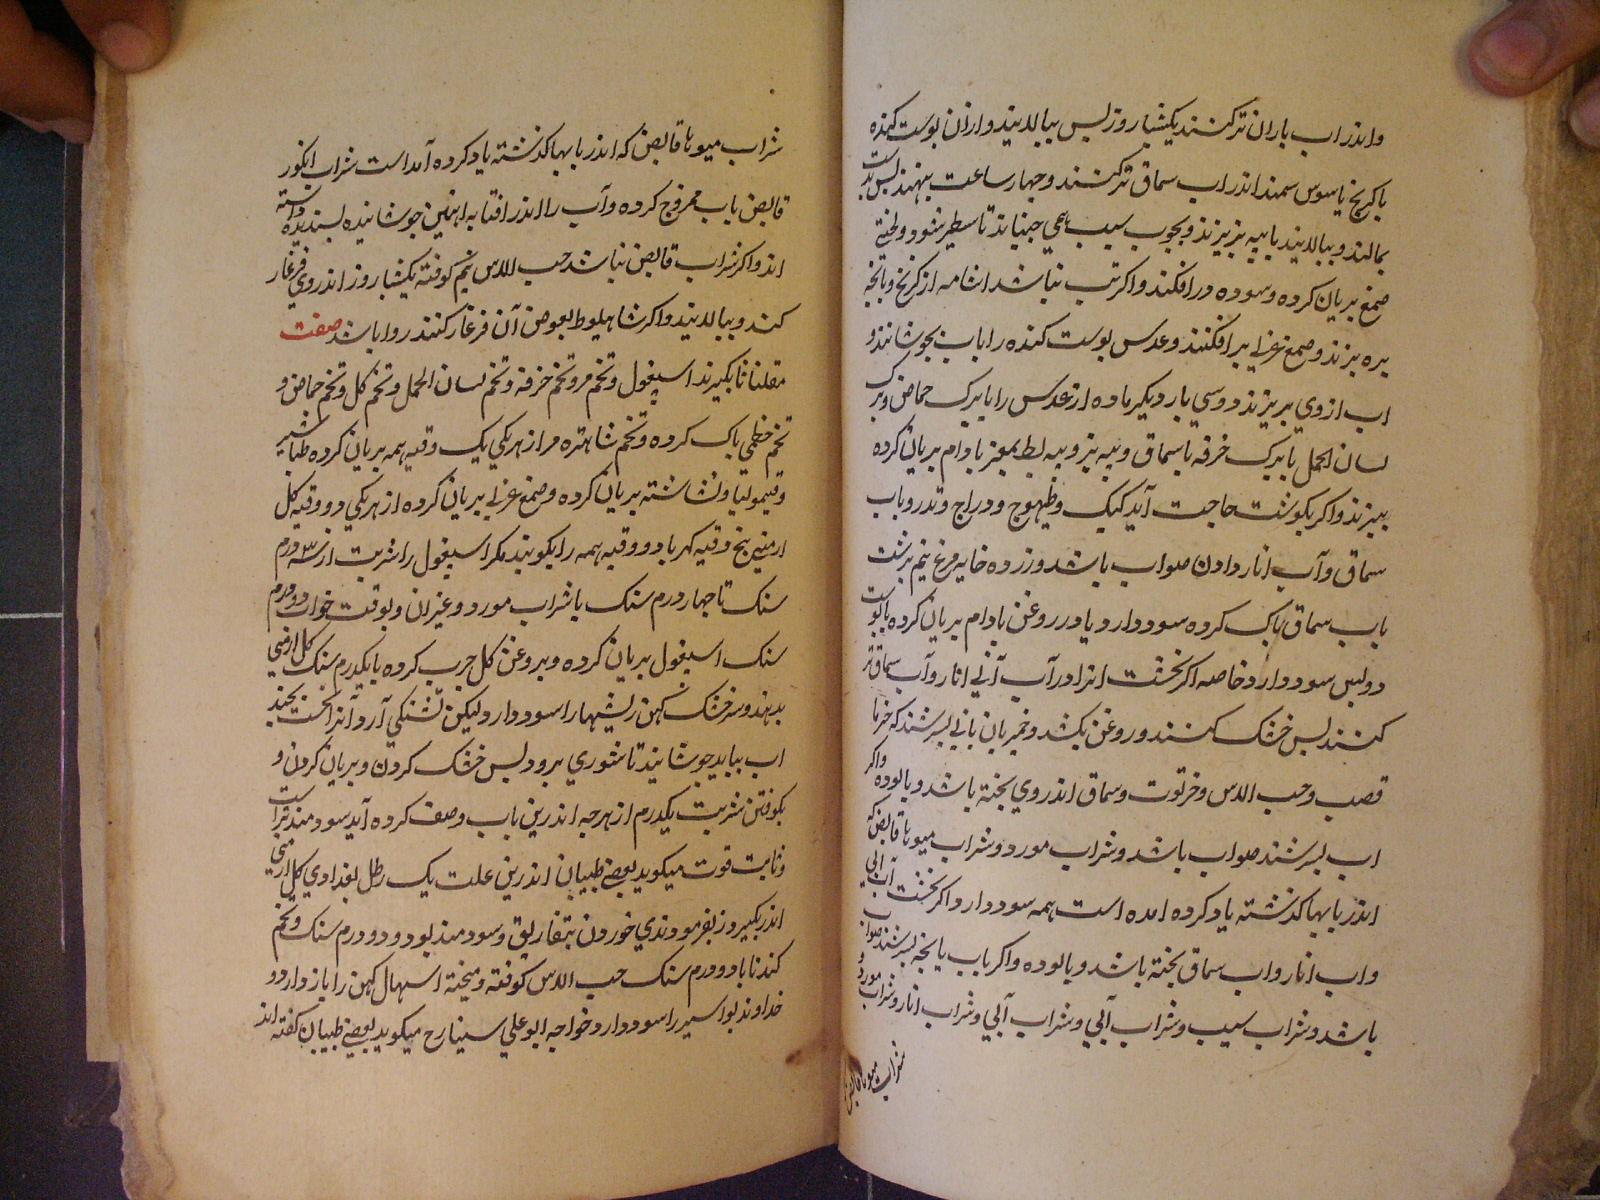 واندر اب باران تر کنند یکشبا روز پس ببالایند و ازان پوست کنده
یا کرنج یا سوس سمید اندر اب سماق تر کنند و چهار ساعت بنهند پس بدست
بمالند و ببالایند با پیه بز بپزند و بچوب سیب همی جنبانند تا سطبر شود و لختی
صمغ بریان کرده و سوده در افکنند و اکر تب نباشد اشامه از کرنج و پاچه
بره بپزند و صمغ عربی بر افکنند و عدس پوست کنده را باب بجوشانند و
اب از وی بریزند دو سی بار دیکر باده از عدس را با برک حماض و برک
لسان الحمل یا برک خرفه با سماق و پیه بز و پیه بط بمغز بادام بریان کرده
بپزند و اکر بکوشت حاجت آید کبک و طیهوج و دراج و تدرو باب
سماق و آب انار دادن صواب باشد و زرده خایه مرغ نیم برشت
باب سماق پاک کرده سود دارد یا در روغن بادام بریان کرده
و پس سود دارد خاصه اکر نخست انرا در آب آبی انار و آب سماق تر
کنند پس خشک کنند و روغن بکشد و خمیر بان بابی بسرشند که خرما
قصب و حب الاس و خرتوت و سماق اندر وی پخته باشد و پالوده واکر
اب بسرشند صواب باشد و شراب مورد و شراب میوها قابض که
اندر بابها کذشته یاد کرده امده است همه سود دارد و اکر نخست آب آبی
واب انار و اب سماق پخته باشد و پالوده و اکر باب پاچه بسرشند صواب
باشد و شراب سیب و شراب آبی و شراب آبی و شراب انار و شراب مورد و
شراب میوها قابض
شراب میوها قابض که اندر بابها کذشته یاد کرده آمداست شراب انکور
قابض باب ممزوج کرده و آب را اندر افتابه اهنین جوشانیده پسندیده داشته
اند و اکر شراب قابض نباشد حب الاس نیم کوفته یکشبا روز اندر وی فرغار
کنند و ببالایند و اکر شاهبلوط بعوض آن فرغار کنند روا باشد صفت
مقلیاثا بکیرند اسپغول و تخم مرو و تخم خرفه و تخم لسان الحمل و تخم کل و تخم حماض و
تخم خطمی پاک کرده و تخم شاهتره مر از هریکی یک وقیه همه بریان کرده طباشیر
و قیمولیا و نشاشته بریان کرده و صمغ عربی بریان کرده از هریکی دو وقیه کل
ارمنی پنج وقیه کهربا دو وقیه همه را بکوبند مکر اسپغول را شربت از سه درم
سنک تا چهار درم سنک با شراب مورد و غیر ان و بوقت خواب دو درم
سنک اسپغول بریان کرده و بروغن کل چرب کرده با یکدرم سنک کل ارمنی
بدهند و سرخشک کهن ریشها را سود دارد ولیکن تشنکی آرد و آنرا نخست بچند
اب بباید جوشانید تا شوری برود پس خشک کردن و بریان کردن و
بکوفتن شربت یکدرم از هرچه اندرین باب وصف کرده آید سودمندتر است
و ثابت قرت میکوید بعضی طبیبان اندرین علت یک رطل بغدادی کل ارمنی
اندر یکروز بفرمودندی خوردن بتفاریق و سودمند بود و دو درم سنک و تخم
کندنا با دو درم سنک حب الاس کوفته و بیخته اسهال کهن را باز دارد و
خداوند بواسیر را سود دارد و خواجه ابو علی سینا رح میکوید بعضی طبیبان کفته اند